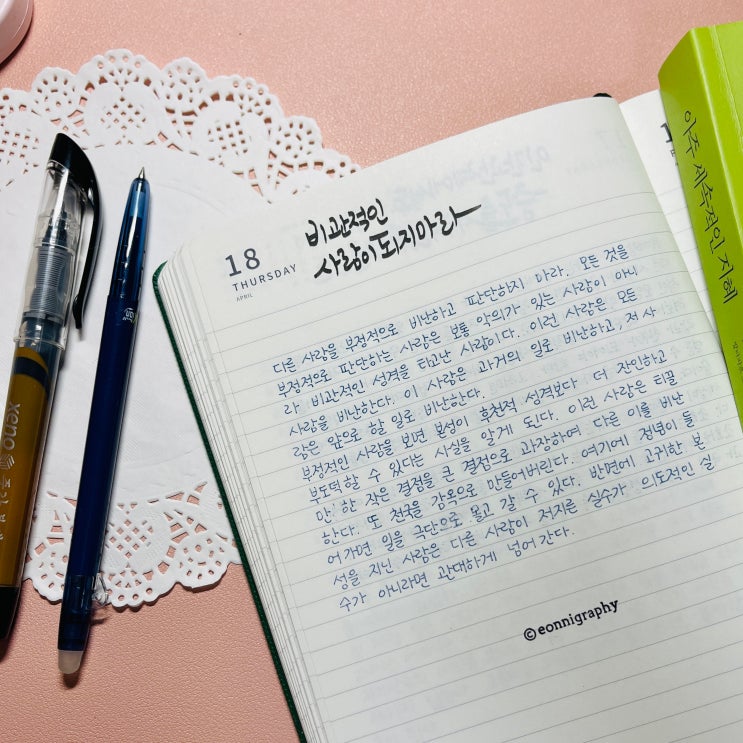 18
THURSDAY
APRIL
비관적인
사람이 되지마라
다른 사람을 부정적으로 비난하고 판단하지 마라. 모든 것을
부정적으로 판단하는 사람은 보통 악의가 있는 사람이 아니
라 비관적인 성격을 타고난 사람이다. 이런 사람은 모든
사람을 비난한다. 이 사람은 과거의 일로 비난하고, 저 사
람은 앞으로 할 일로 비난한다.
부정적인 사람을 보면 본성이 후천적 성격보다 더 잔인하고
부도덕할 수 있다는 사실을 알게 된다. 이런 사람은 티끌
만 한 작은 결점을 큰 결점으로 과장하여 다른 이를 비난
한다. 또 천국을 감옥으로 만들어버린다. 여기에 정념이 들
어가면 일을 극단으로 몰고 갈 수 있다. 반면에 고귀한 본
성을 지닌 사람은 다른 사람이 저지른 실수가 의도적인 실
수가 아니라면 관대하게 넘어간다.
©eonnigraphy
아주 세속적인 지혜
xeno